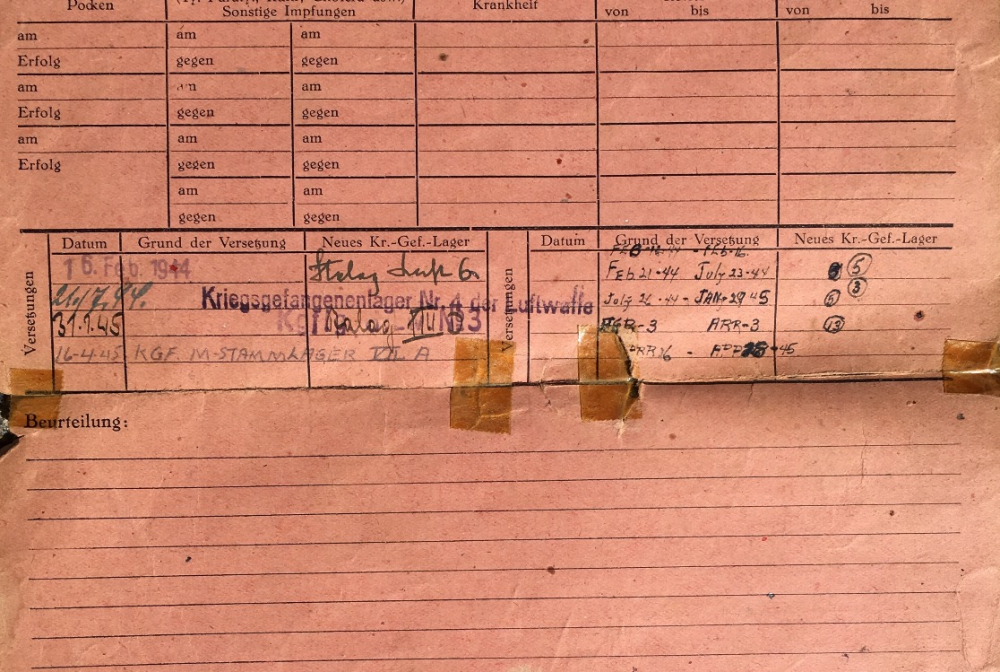 Pocken Sonstige Impfungen Krankheit von bis von bis
am am am
Erfolg gegen gegen
am am am
Erfolg gegen gegen
am am am
Erfolg gegen gegen
am am
gegen gegen
Versetzungen Datum Grund der Versetzung Neues Kr.-Gef.-Lager
16. Feb. 1944 Stalag Luft 6
21./7.44. Kriegsgefangenenlager Nr. 4 der Luftwaffe
31.1.45
16-4-45 KGF. M-STAMMLAGER VII A
Versetzungen Datum Grund der Versetzung Neues Kr.-Gef.-Lager
Feb 21-44 July 23-44 5
July 26-44 - JAN-29 45 6 3
FEB-3 13
45
Beurteilung: